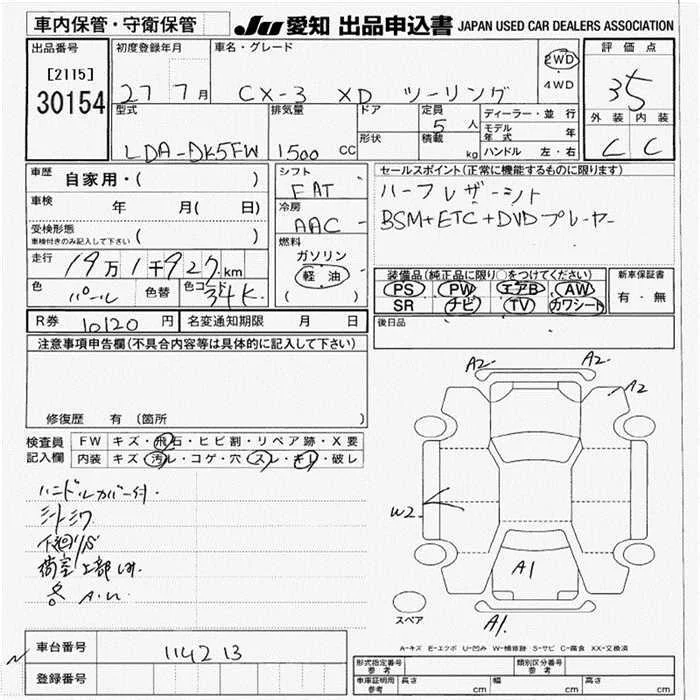 車内保管・守衛保管
JU 愛知 出品申込書 JAPAN USED CAR DEALERS ASSOCIATION
出品番号
[2115]
30154
初度登録年月
27 7月
車名・グレード
CX-3 XD ツーリング
2WD
4WD
評価点
35
外装 内装
C C
型式
LDA-DK5FW
排気量
1500 CC
ドア
形状
定員
5 人
積載
kg
ディーラー・並行
モデル年式 年
ハンドル 左・右
車歴
自家用・( )
車検 年 月( 日)
受検形態
車検付きのみ記入して下さい ( )
走行
19万1千927km
色
パール
色替
色コード
34K
シフト
FAT
冷房
AAC
燃料
ガソリン
軽油
( )
セールスポイント(正常に機能するものに限ります)
ハーフレザーシート
BSM+ETC+DVDプレーヤー
装備品(純正品に限り○をつけてください)
PS PW エアB AW
SR ナビ TV カワシート
新車保証書
有・無
R券 10120円
名変通知期限 月 日
後日品
注意事項申告欄(不具合内容等は具体的に記入して下さい)
修復歴 有 〔箇所 〕
検査員記入欄
FW キズ・飛石・ヒビ割・リペア跡・X要
内装 キズ・汚レ・コゲ・穴・スレ・キレ・破レ
ハンドルカバー付.
シートシワ
下廻りS
A2. A2.
A2
W2
A1
A1.
スペア
A-キズ E-エクボ U-凹み W-補修跡 S-サビ C-腐食 XX-交換済
車台番号 114213
登録番号
形式指定番号 参考
類別区分番号 参考
車庫証明用 参考
長さ cm 幅 cm 高さ cm